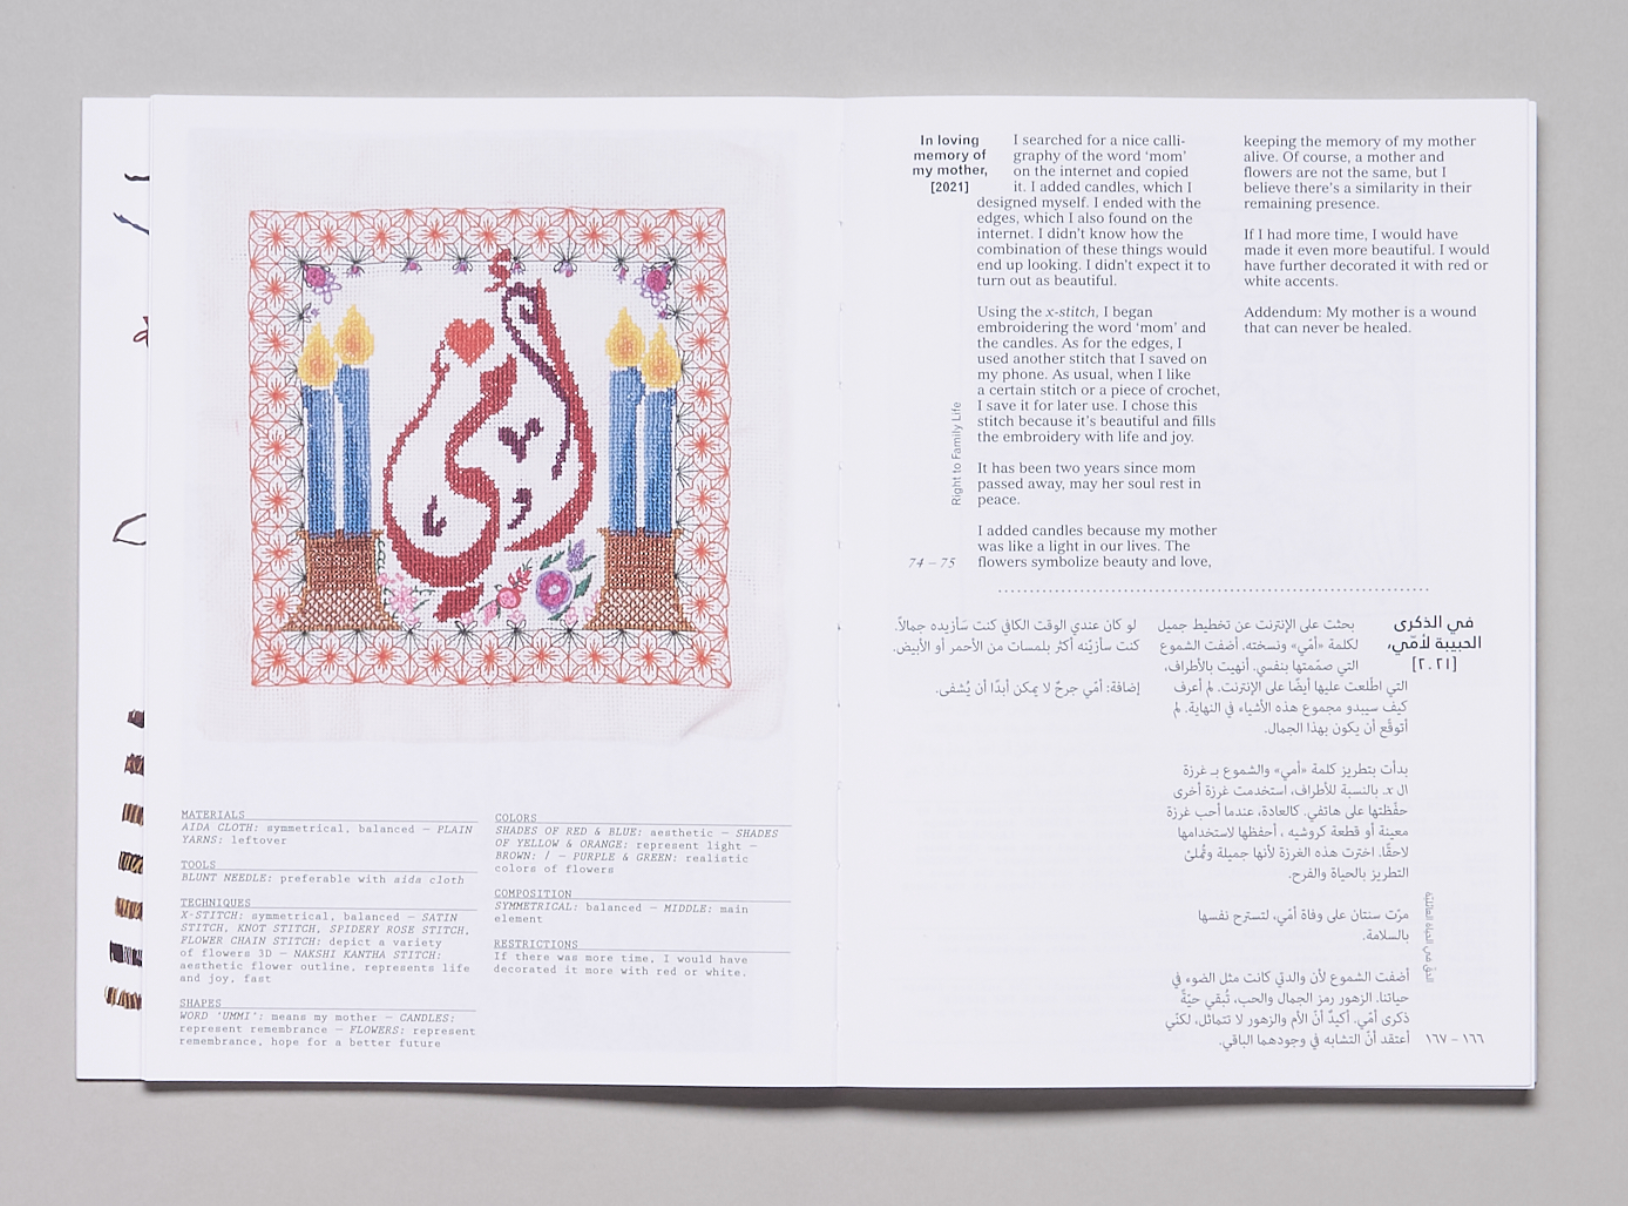 MATERIALS
AIDA CLOTH: symmetrical, balanced — PLAIN
YARNS: leftover
TOOLS
BLUNT NEEDLE: preferable with aida cloth
TECHNIQUES
X-STITCH: symmetrical, balanced — SATIN
STITCH, KNOT STITCH, SPIDERY ROSE STITCH,
FLOWER CHAIN STITCH: depict a variety
of flowers 3D — NAKSHI KANTHA STITCH:
aesthetic flower outline, represents life
and joy, fast
SHAPES
WORD 'UMMI': means my mother — CANDLES:
represent remembrance — FLOWERS: represent
remembrance, hope for a better future
COLORS
SHADES OF RED & BLUE: aesthetic — SHADES
OF YELLOW & ORANGE: represent light —
BROWN: / — PURPLE & GREEN: realistic
colors of flowers
COMPOSITION
SYMMETRICAL: balanced — MIDDLE: main
element
RESTRICTIONS
If there was more time, I would have
decorated it more with red or white.
In loving
memory of
my mother,
[2021]
I searched for a nice calli-
graphy of the word ‘mom’
on the internet and copied
it. I added candles, which I
designed myself. I ended with the
edges, which I also found on the
internet. I didn’t know how the
combination of these things would
end up looking. I didn’t expect it to
turn out as beautiful.
Using the x-stitch, I began
embroidering the word ‘mom’ and
the candles. As for the edges, I
used another stitch that I saved on
my phone. As usual, when I like
a certain stitch or a piece of crochet,
I save it for later use. I chose this
stitch because it’s beautiful and fills
the embroidery with life and joy.
It has been two years since mom
passed away, may her soul rest in
peace.
I added candles because my mother
was like a light in our lives. The
flowers symbolize beauty and love,
keeping the memory of my mother
alive. Of course, a mother and
flowers are not the same, but I
believe there’s a similarity in their
remaining presence.
If I had more time, I would have
made it even more beautiful. I would
have further decorated it with red or
white accents.
Addendum: My mother is a wound
that can never be healed.
Right to Family Life
74 – 75
في الذكرى
الحبيبة لأمّي،
[٢٠٢١]
بحثت على الإنترنت عن تخطيط جميل
لكلمة «أمّي» ونسخته. أضفت الشموع
التي صمّمتها بنفسي. أنهيت بالأطراف،
التي اطّلعت عليها أيضًا على الإنترنت. لم أعرف
كيف سيبدو مجموع هذه الأشياء في النهاية. لم
أتوقّع أن يكون بهذا الجمال.
بدأت بتطريز كلمة «أمي» والشموع بـ غرزة
ال x. بالنسبة للأطراف، استخدمت غرزة أخرى
حفّظتها على هاتفي. كالعادة، عندما أحب غرزة
معينة أو قطعة كروشيه ، أحفظها لاستخدامها
لاحقًا. اخترت هذه الغرزة لأنها جميلة وتُملئ
التطريز بالحياة والفرح.
مرّت سنتان على وفاة أمّي، لتسترح نفسها
بالسلامة.
أضفت الشموع لأن والدتي كانت مثل الضوء في
حياتنا. الزهور رمز الجمال والحب، تُبقي حيّةً
ذكرى أمّي. أكيدٌ أنّ الأم والزهور لا تتماثل، لكنّي
أعتقد أنّ التشابه في وجودهما الباقي.
لو كان عندي الوقت الكافي كنت سَأزيده جمالاً.
كنت سأزيّنه أكثر بلمسات من الأحمر أو الأبيض.
إضافة: أمّي جرحٌ لا يمكن أبدًا أن يُشفى.
الحقّ في الحياة العائليّة
١٦٦ – ١٦٧